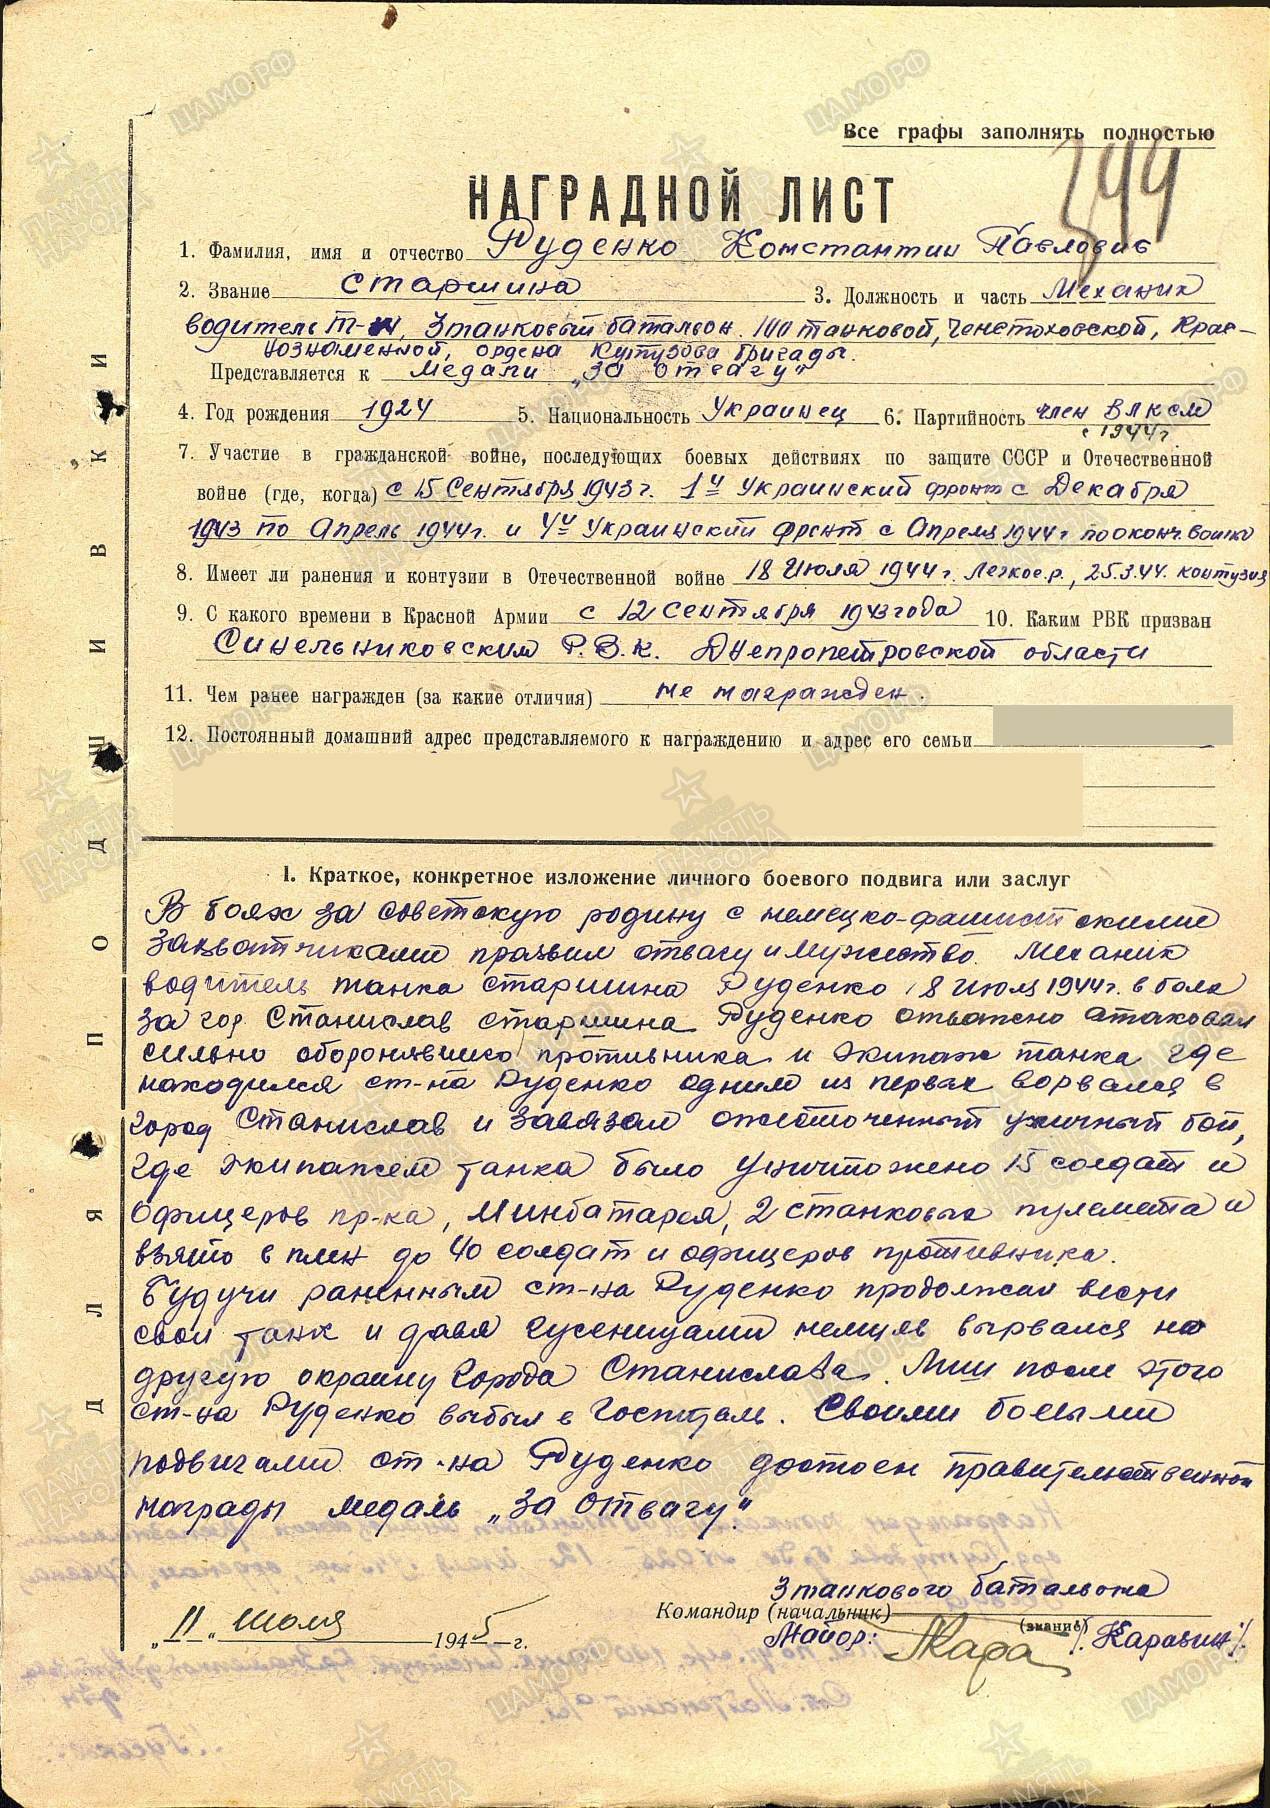 Все графы заполнять полностью
344
НАГРАДНОЙ ЛИСТ
1. Фамилия, имя и отчество Руденко Константин Павлович
2. Звание Старшина 3. Должность и часть Механик
водитель Т-34, 3 танковый батальон 100 танковой, Ченстоховской, Крас-
нознаменной, ордена Кутузова бригады.
Представляется к медали „За отвагу"
4. Год рождения 1924 5. Национальность Украинец 6. Партийность член ВЛКСМ
с 1944г.
7. Участие в гражданской войне, последующих боевых действиях по защите СССР и Отечественной
войне (где, когда) с 15 Сентября 1943г. 1й Украинский фронт с Декабря
1943 по Апрель 1944г. и 4й Украинский фронт с Апреля 1944г по оконч. войны
8. Имеет ли ранения и контузии в Отечественной войне 18 Июля 1944г. Легкое р., 25.3.44. контузия
9. С какого времени в Красной Армии с 12 Сентября 1943 года 10. Каким РВК призван
Синельниковским Р.В.К. Днепропетровской области
11. Чем ранее награжден (за какие отличия) не награжден.
12. Постоянный домашний адрес представляемого к награждению и адрес его семьи
I. Краткое, конкретное изложение личного боевого подвига или заслуг
В боях за советскую родину с немецко-фашистскими
захватчиками проявил отвагу и мужество. Механик
водитель танка старшина Руденко 18 Июля 1944г. в боях
за гор Станислав старшина Руденко отважно атаковал
сильно оборонявшего противника и экипаж танка где
находился ст-на Руденко одним из первых ворвался в
город Станислав и завязал ожесточенный уличный бой,
где экипажем танка было уничтожено 15 солдат и
офицеров пр-ка, Минбатарея, 2 станковых пулемета и
взято в плен до 40 солдат и офицеров противника.
Будучи раненным ст-на Руденко продолжал вести
свой танк и давя гусеницами немцев вырвался на
другую окраину города Станислава. Лиш после этого
ст-на Руденко выбыл в Госпиталь. Своими боевыми
подвигами ст-на Руденко достоен правительственной
награды медаль „За Отвагу".
3 танкового батальона
Командир (начальник)
(звание)
Майор: /Каравин/.
„11" Июля 1945 г.
ДЛЯ ПОДШИВКИ
ПАМЯТЬ НАРОДА
ЦАМО.РФ